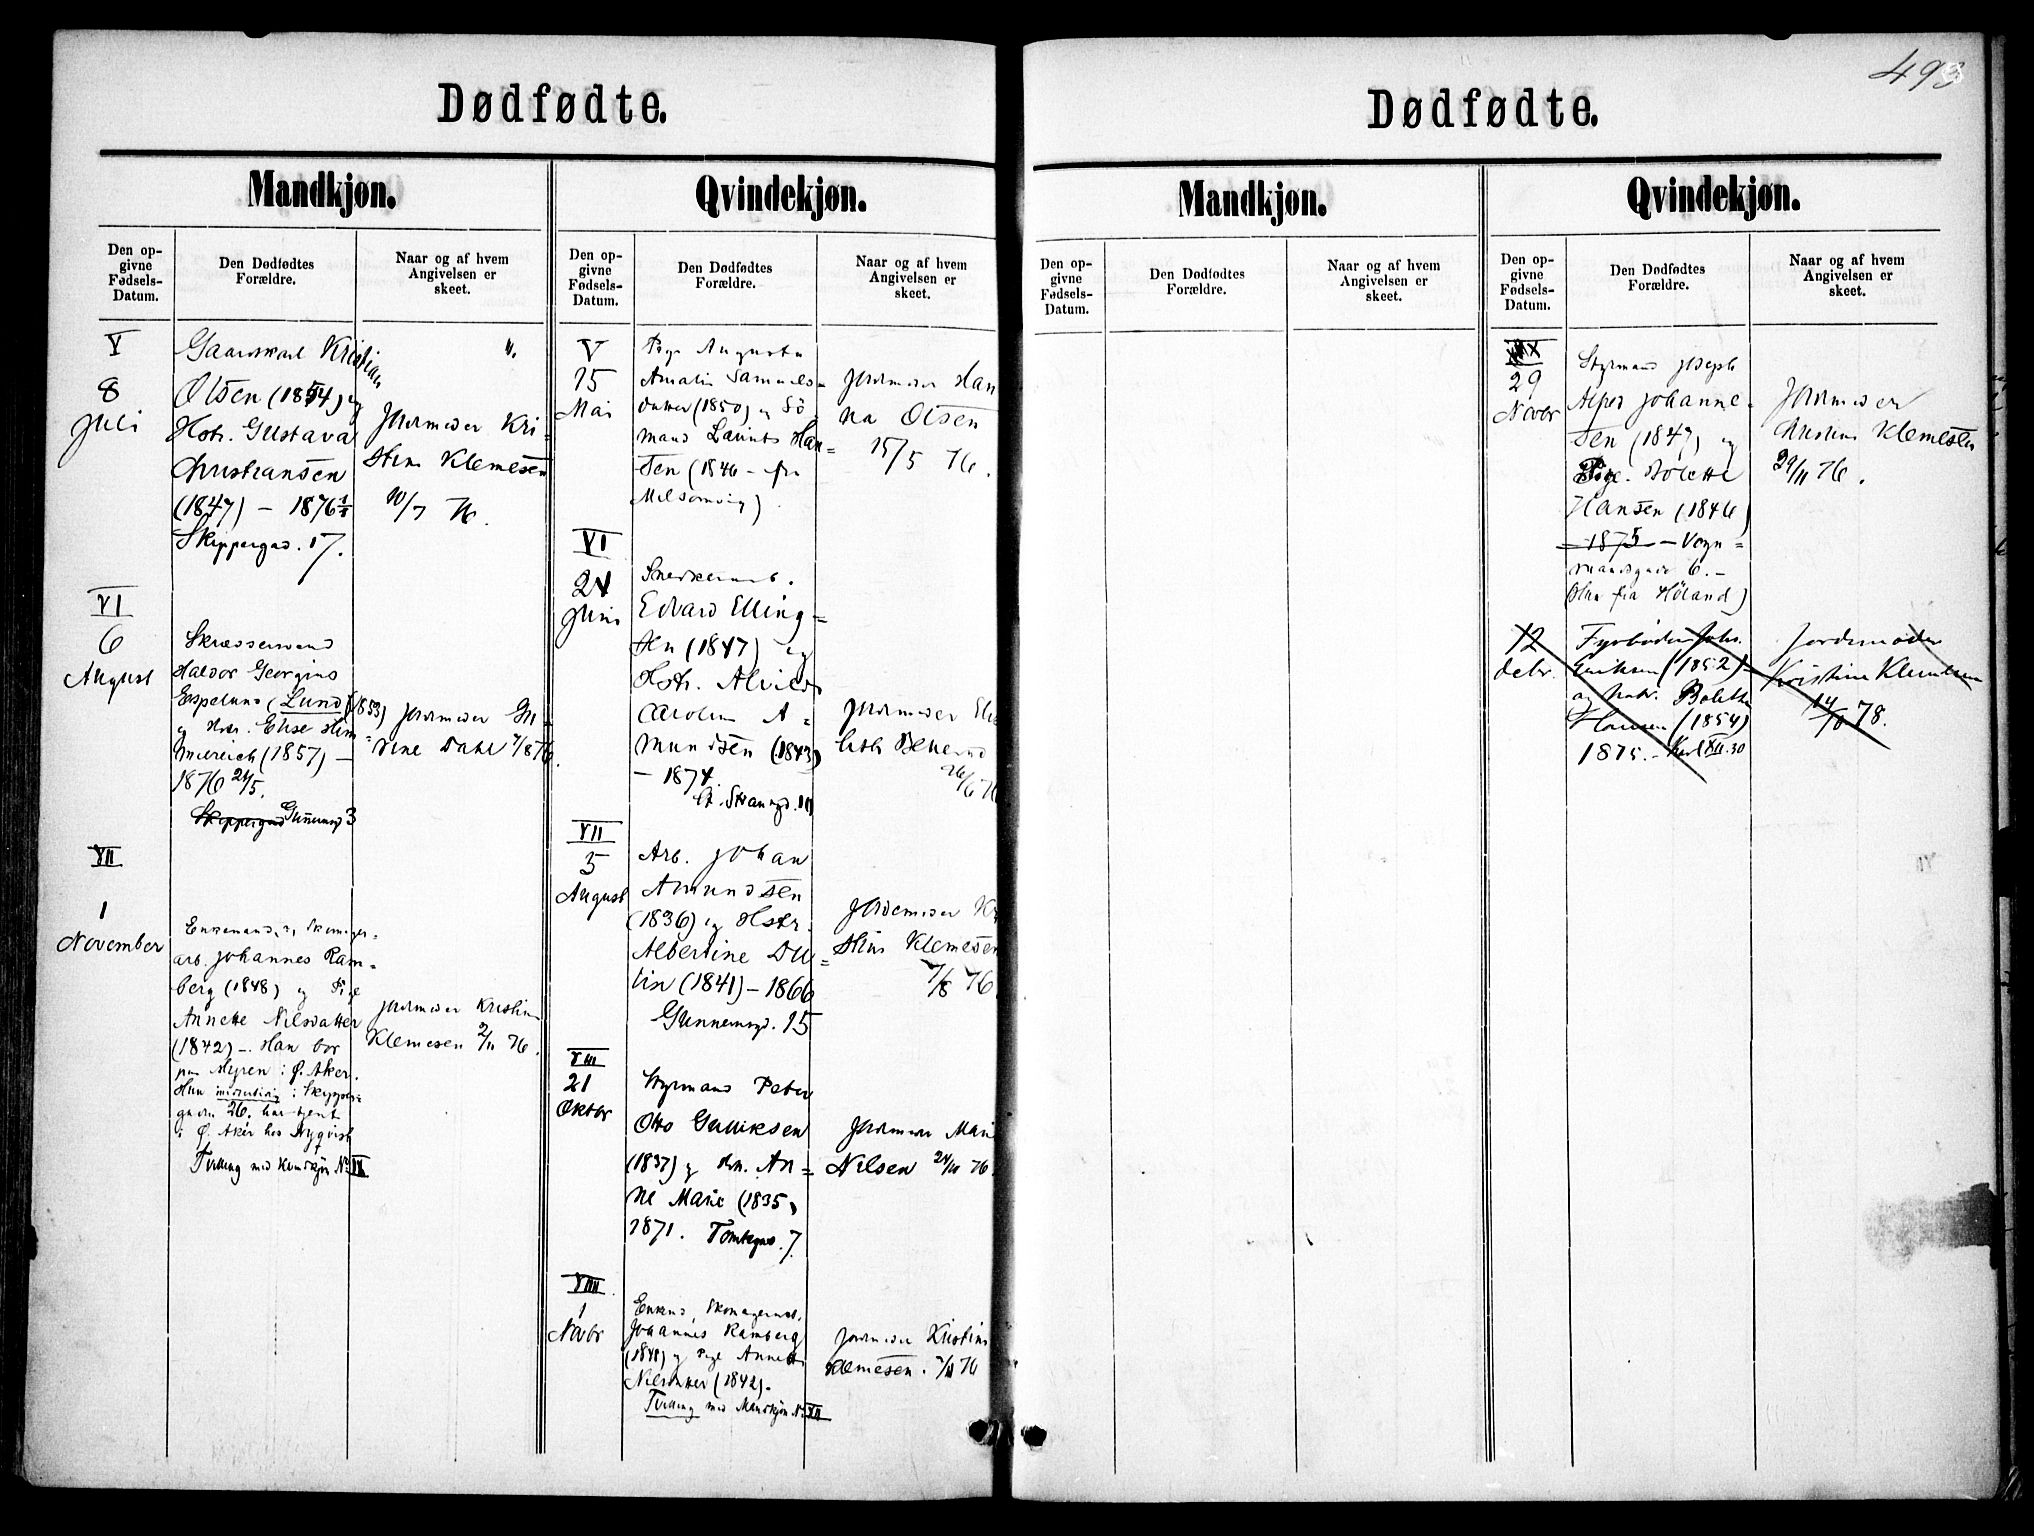 Dødfødte.
Mandkjøn.
Qvindekjøn.
Den op-
givne
Fødsels-
Datum.
Den Dødfødtes
Forældre.
Naar og af hvem
Angivelsen er
skeet.
Den op-
givne
Fødsels-
Datum.
Den Dødfødtes
Forældre.
Naar og af hvem
Angivelsen er
skeet.
V
8
Juli
Gaardskarl Kristian
Olsen (1854) og
Hstr. Gustava
Christiansen
(1847) – 1876
Skippergad. 17.
"
Jordmoder Kri-
stine Klemesen
10/7 76.
VI
6
August
Skræddersvend
Haldor Georgius
Espelund (Lund) (1853)
og Hstr. Elise Him-
merich (1857) –
1876 24/5.
Skippergad Gunnersgd 3
Jordmoder
Dahl 7/8 76.
VII
1
November
Enkemand, Skomager-
arb. Johannes Ram-
berg (1848) og Pige
Annette Nilsdatter
(1842) – Han bor
paa Myren i Ø. Aker.
Hun midlertidig i Skipper-
gaden 26. har tjent
i Ø. Aker hos Nyqvist
Tvilling med Kvindkjøn No IX
Jordmoder Kristine
Klemesen 2/11 76.
V
15
Mai
Pige Augusta
Amalie Samuels-
datter (1850) og Sø
mand Laurits Han-
sen (1846 – fra
Melsomvig)
Jordmoder Han
na Olsen
15/5 76.
VI
24
Juni
Snedkerarb.
Edvard Elling-
sen (1847) og
Hstr. Alvilde
Caroline A-
mundsen (1843)
– 1874.
St. Strandgd. 10
Jordmoder Elisa
beth
26/6 76
VII
5
August
Arb. Johan
Amundsen
(1836) og Hstr.
Albertine Du-
lin (1841) – 1866
Gunnersgd. 15
Jordemoder Kr
stine Klemesen
7/8 76.
VIII
21
Oktbr
Styrmand Peter
Otto Gulliksen
(1837) og Hstr. An-
ne Marie (1835)
1871. Tomtegad. 7.
Jordmoder Marie
Nilsen 24/10 76.
VIII
1
Novbr
Enkemd, Skomagerarb.
Johannes Ramberg
(1848) og Pige Annette
Nilsdatter (1842).
Tvilling med Mandkjøn No VII
Jordmoder Kristine
Klemesen. 2/11 76
493
Dødfødte.
Mandkjøn.
Qvindekjøn.
Den op-
givne
Fødsels-
Datum.
Den Dødfødtes
Forældre.
Naar og af hvem
Angivelsen er
skeet.
Den op-
givne
Fødsels-
Datum.
Den Dødfødtes
Forældre.
Naar og af hvem
Angivelsen er
skeet.
29
Novbr
Styrmand Joseph
Alfred Johanne-
sen (1847) og
Pige. Bolette
Hansen (1846)
– 1875 – Vogn-
mandsgade 6. –
(Hun fra Høland)
Jordmoder
Christine Klemesen
29/11 76.
12
debr.
Fyrbøder Johs.
Eriksen (1852)
og hstr. Bolette
Hansen (1854)
1875. – Karl XII. 30
Jordemoder
Kristine Klemesen
78.